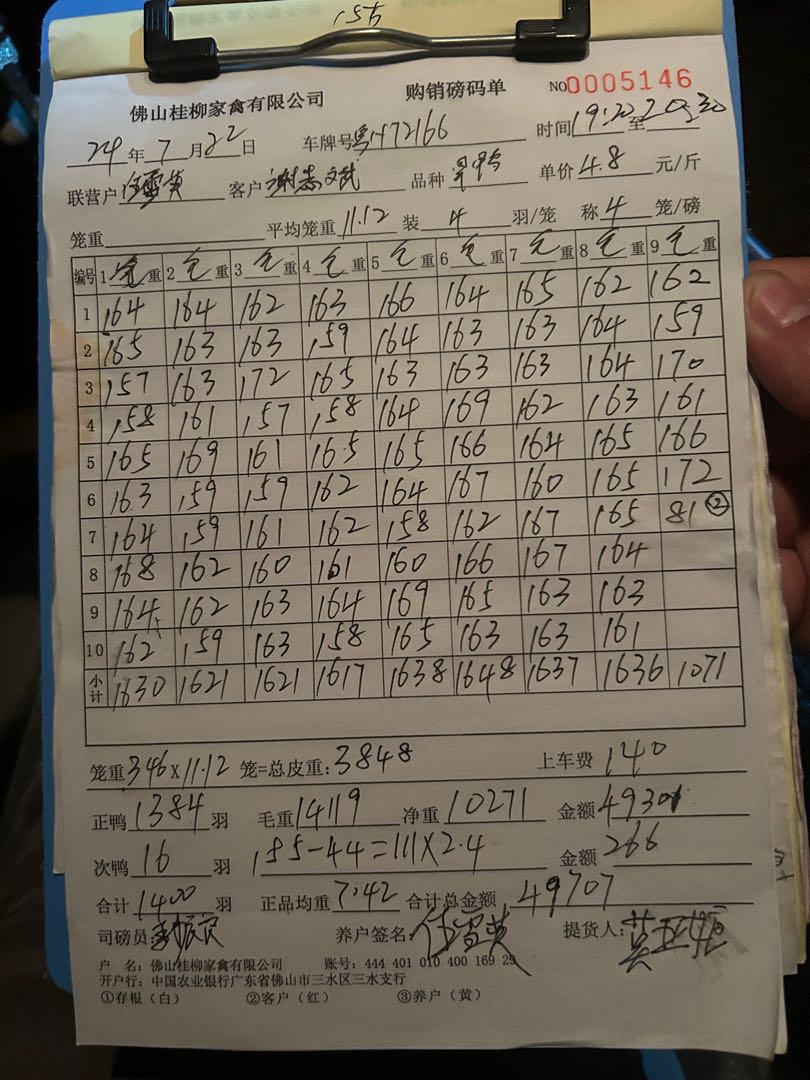 155
佛山桂柳家禽有限公司 购销磅码单 NO0005146
24年7月22日 车牌号粤H72166 时间19:20至20:30
联营户伍雪英 客户谢志文武 品种 单价4.8元/斤
笼重 平均笼重11.12 装4羽/笼 称4笼/磅
编号 1毛重 2毛重 3毛重 4毛重 5毛重 6毛重 7毛重 8毛重 9毛重
1 164 164 162 163 166 164 165 162 162
2 165 163 163 159 164 163 163 164 159
3 157 163 172 165 163 163 163 164 170
4 158 161 157 158 164 169 162 163 161
5 165 169 161 165 165 166 164 165 166
6 163 159 159 162 164 167 160 165 172
7 164 159 161 162 158 162 167 165 81②
8 168 162 160 161 160 166 167 164
9 164 162 163 164 169 165 163 163
10 162 159 163 158 165 163 163 161
小计 1630 1621 1621 1617 1638 1648 1637 1636 1071
笼重346X11.12笼=总皮重:3848 上车费140
正鸭1384羽 毛重14119 净重10271 金额49301
次鸭16羽 155-44=111X2.4 金额266
合计1400羽 正品均重7.42 合计总金额49707
司磅员 养户签名:伍雪英 提货人:
户 名:佛山桂柳家禽有限公司 账号:444 401 010 400 169 29
开户行:中国农业银行广东省佛山市三水区三水支行
①存根(白) ②客户(红) ③养户(黄)